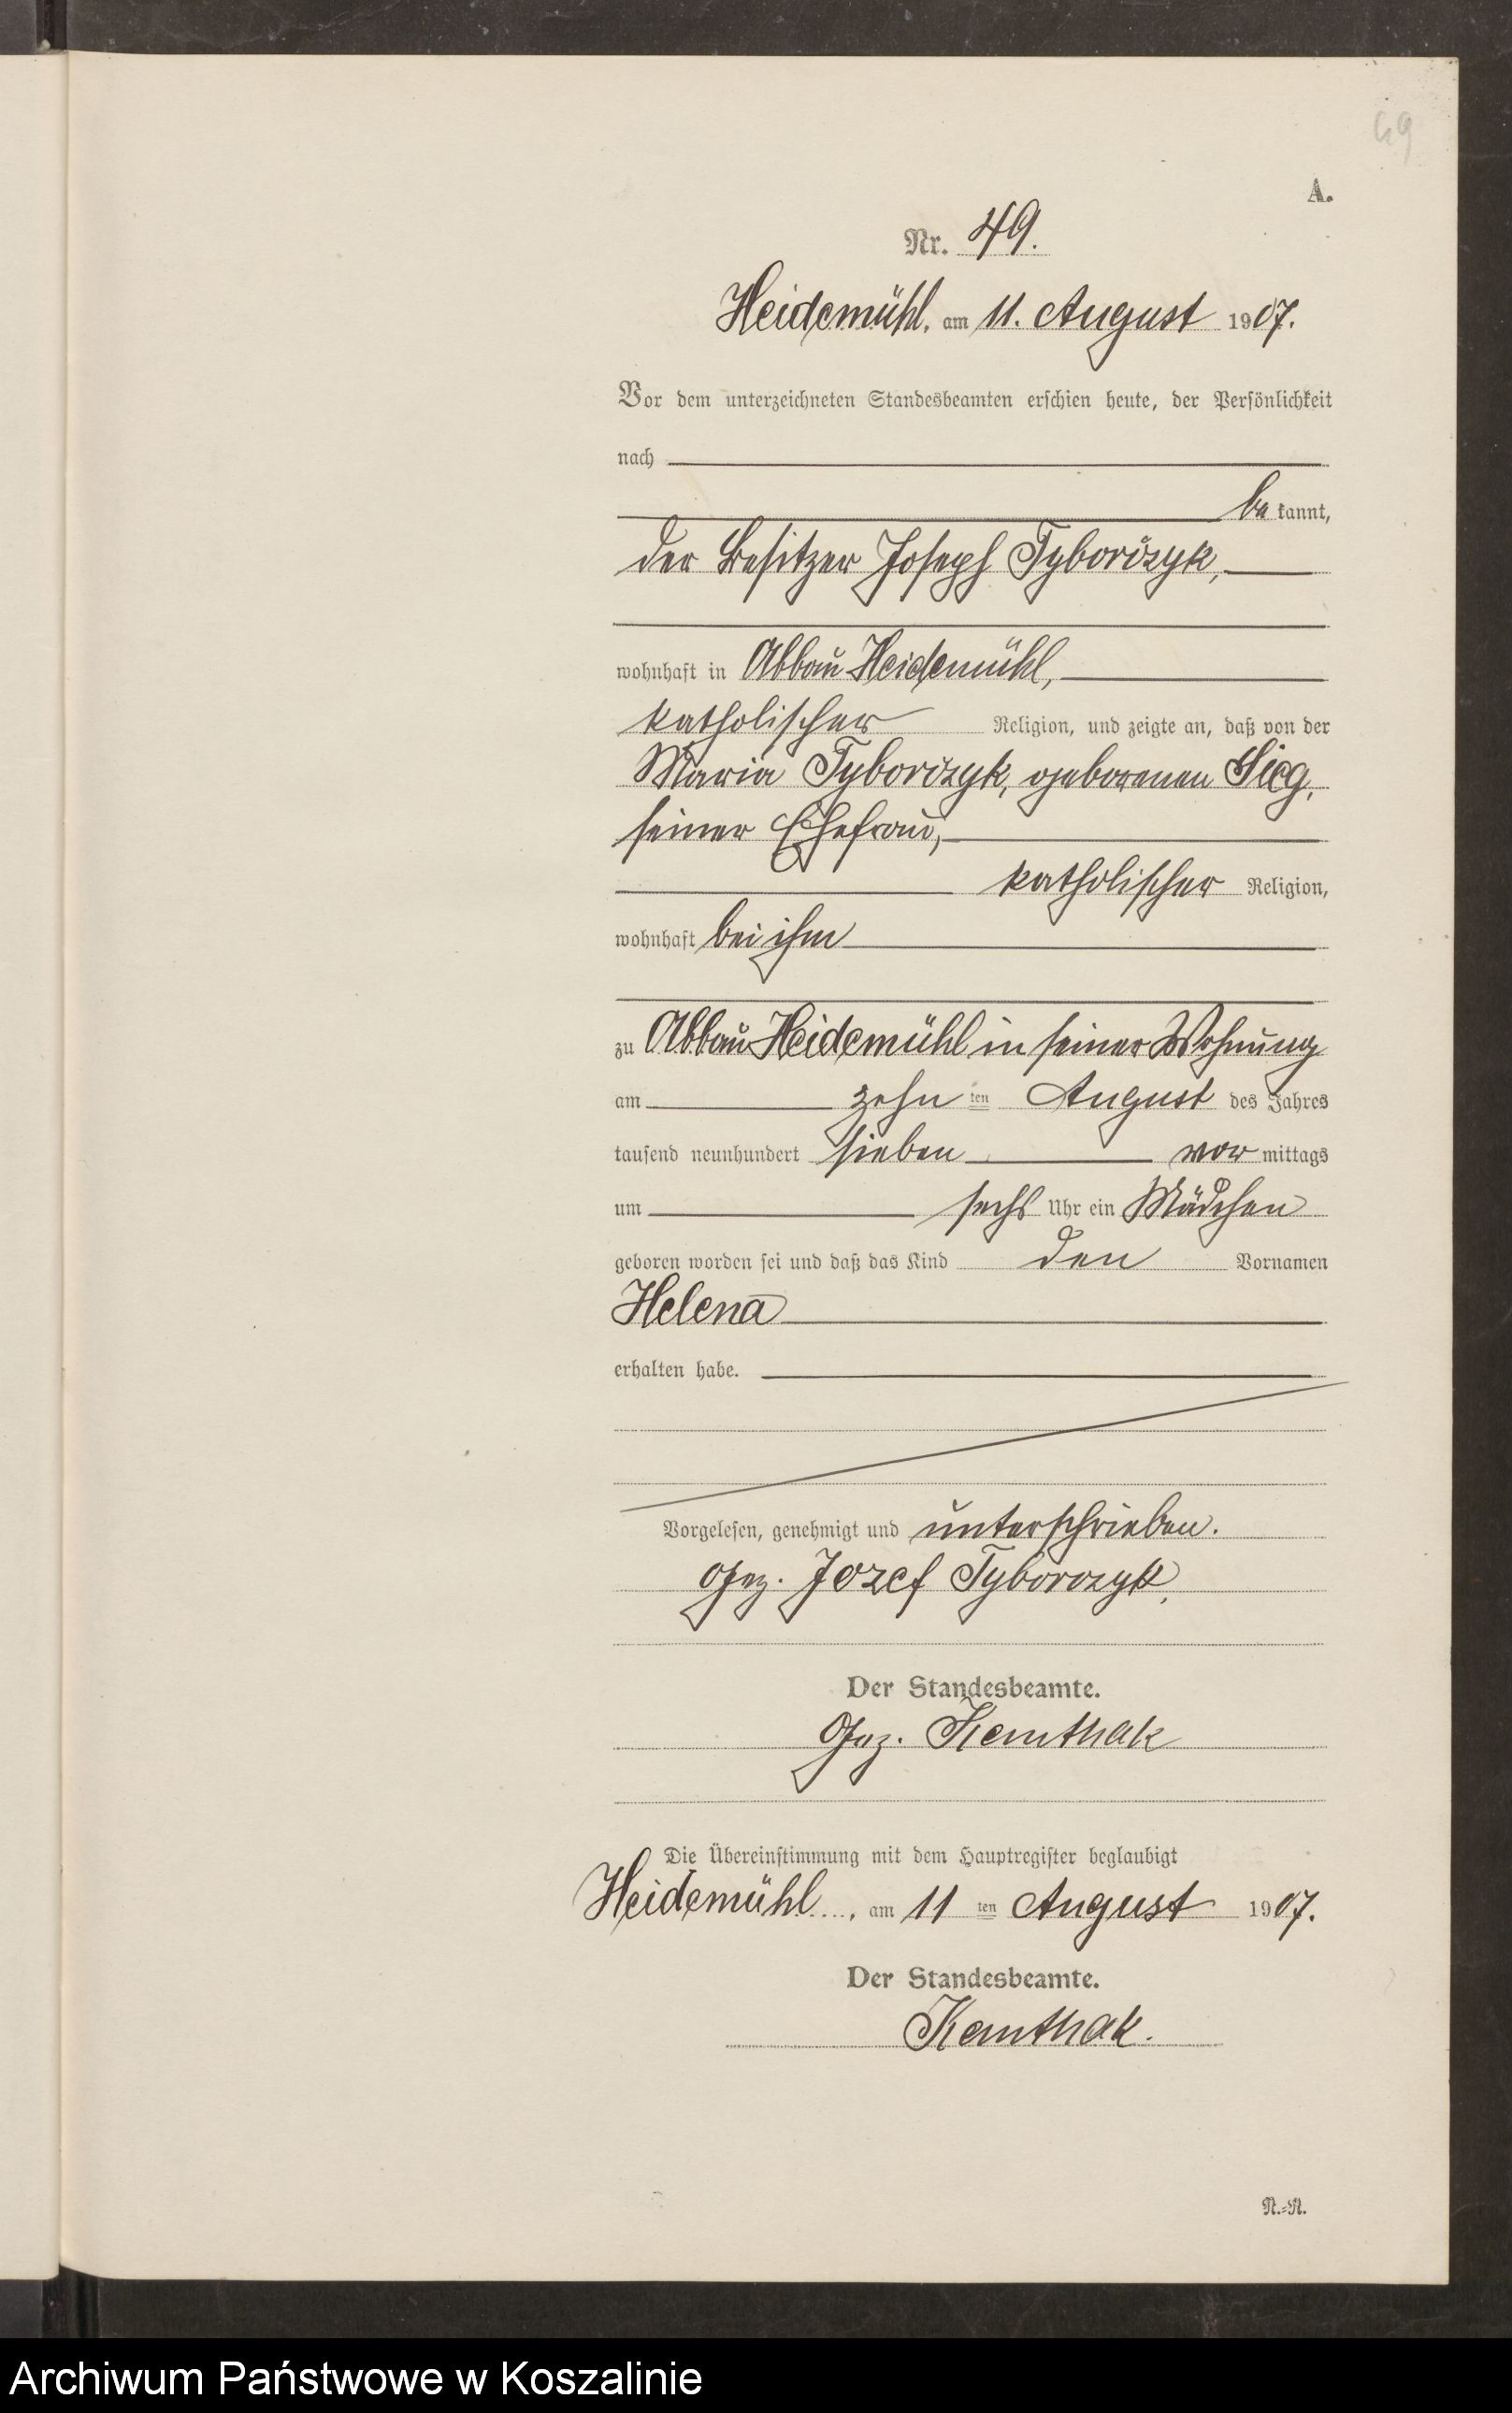 49
A.
Nr. 49.
Heidemühl, am 11. August 1907.
Vor dem unterzeichneten Standesbeamten erschien heute, der Persönlichkeit
nach
be kannt,
der Besitzer Joseph Tyborczyk,
wohnhaft in Abbau Heidemühl,
katholischer Religion, und zeigte an, daß von der
Maria Tyborczyk, geborenen Sieg,
seiner Ehefrau,
katholischer Religion,
wohnhaft bei ihm
zu Abbau Heidemühl in seiner Wohnung
am zehn ten August des Jahres
tausend neunhundert sieben vor mittags
um sechs Uhr ein Mädchen
geboren worden sei und daß das Kind den Vornamen
Helena
erhalten habe.
Vorgelesen, genehmigt und unterschrieben.
Gez. Jozef Tyborczyk,
Der Standesbeamte.
Gez. Kemthak
Die Übereinstimmung mit dem Hauptregister beglaubigt
Heidemühl, am 11 ten August 1907.
Der Standesbeamte.
Kemthak.
N.=R.
Archiwum Państwowe w Koszalinie